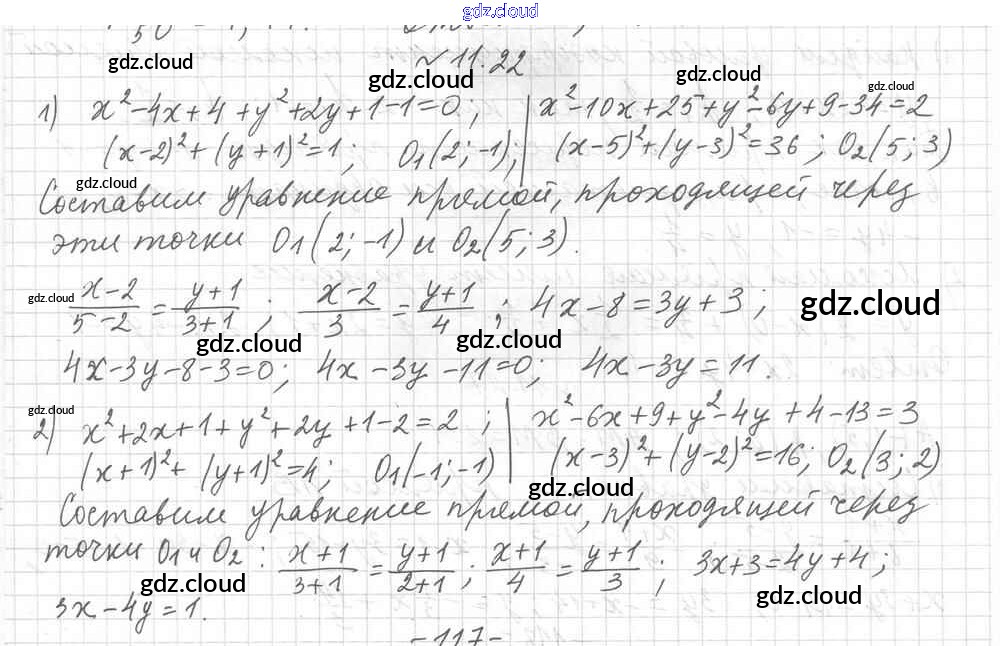 gdz.cloud
№ 11.22
gdz.cloud gdz.cloud gdz.cloud
1) x²-4x+4+y²+2y+1-1=0; | x²-10x+25+y²-6y+9-34=2
(x-2)²+(y+1)²=1; O1(2;-1); | (x-5)²+(y-3)²=36; O2(5;3)
gdz.cloud
Составим уравнение прямой, проходящей через
эти точки O1(2;-1) и O2(5;3).
gdz.cloud (x-2)/(5-2) = (y+1)/(3+1); (x-2)/3 = (y+1)/4; 4x-8=3y+3; gdz.cloud
gdz.cloud gdz.cloud
4x-3y-8-3=0; 4x-3y-11=0; 4x-3y=11.
gdz.cloud
2) x²+2x+1+y²+2y+1-2=2; | x²-6x+9+y²-4y+4-13=3
(x+1)²+(y+1)²=4; O1(-1;-1) | (x-3)²+(y-2)²=16; O2(3;2)
gdz.cloud
Составим уравнение прямой, проходящей через
точки O1 и O2: (x+1)/(3+1) = (y+1)/(2+1); (x+1)/4 = (y+1)/3; 3x+3=4y+4;
gdz.cloud gdz.cloud
3x-4y=1.
-117-